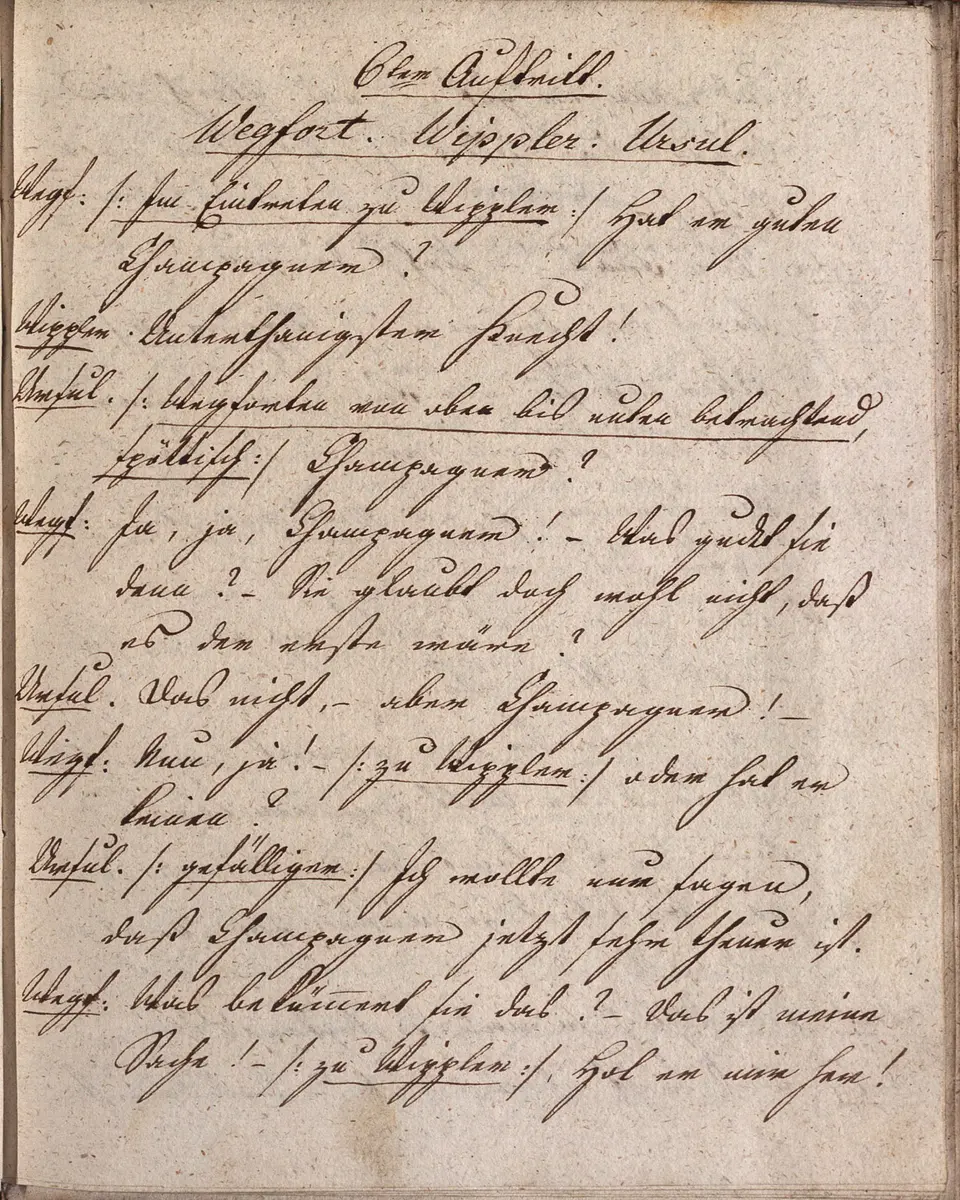 6ter Auftritt.
Wegfort. Wippler. Ursul.
Wegf: /: Im Eintreten zu Wippler :/ Hat er guten
Champagner?
Wippler. Unterthänigster Knecht!
Ursul. /: Wegforten von oben bis unten betrachtend,
spöttisch :/ Champagner?
Wegf: Ja, ja, Champagner! – Was guckt sie
denn? – Sie glaubt doch wohl nicht, daß
es der erste wäre?
Ursul. Das nicht, – aber Champagner! –
Wegf: Nun, ja! – /: zu Wippler :/ oder hat er
keinen?
Ursul. /: gefälliger :/ Ich wollte nur sagen,
daß Champagner jetzt sehr theuer ist.
Wegf: Was bekümmert sie das? – Das ist meine
Sache! – /: zu Wippler :/, Hol er mir her!